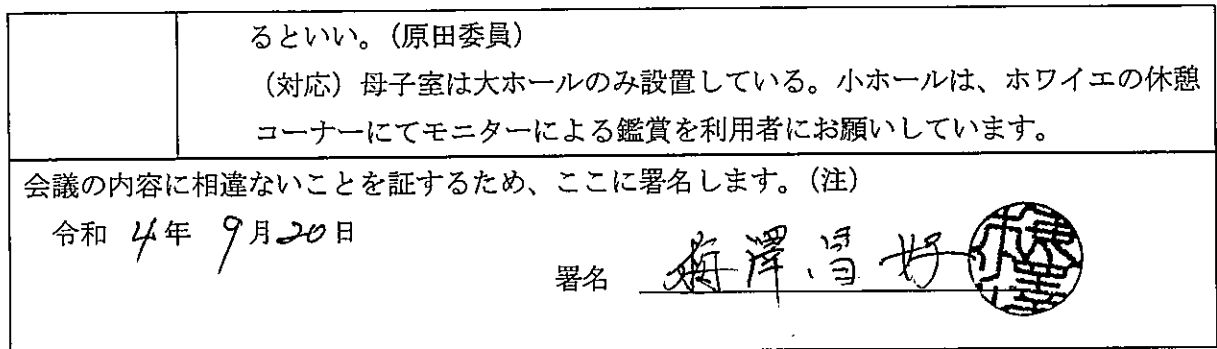 るといい。(原田委員)
(対応)母子室は大ホールのみ設置している。小ホールは、ホワイエの休憩
コーナーにてモニターによる鑑賞を利用者にお願いしています。
会議の内容に相違ないことを証するため、ここに署名します。(注)
令和 4年 9月20日
署名 梅澤昌好